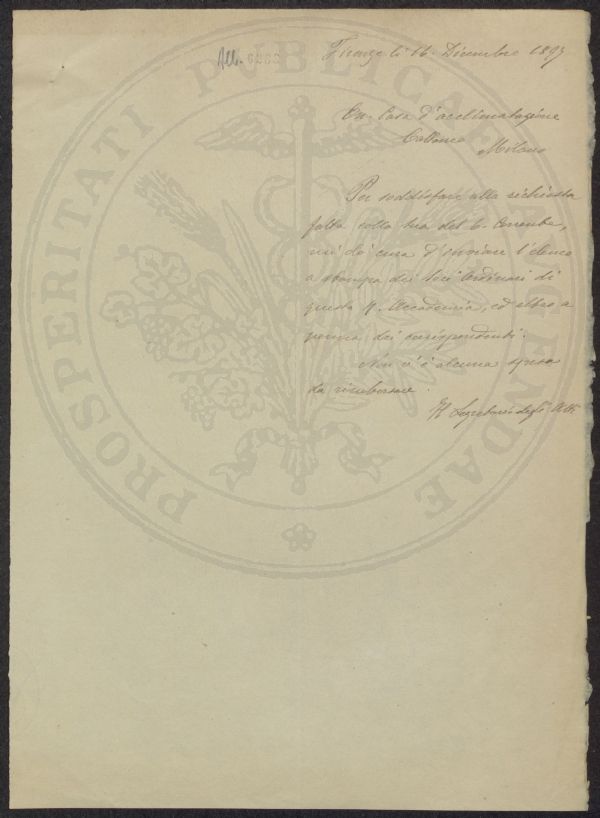 All.
Firenze li 16 Dicembre 1897
On. Casa d'acclimatazione
Milano
Per soddisfare alla richiesta
fatta colla sua del 6. Corrente,
mi do cura d'inviare l'elenco
a stampa dei Soci Ordinari di
questa R. Accademia, ed altro a
penna dei corrispondenti.
Non vi è alcuna spesa
da rimborsare.
Il Segretario degli Atti
PROSPERITATI PUBLICAE AUGENDAE